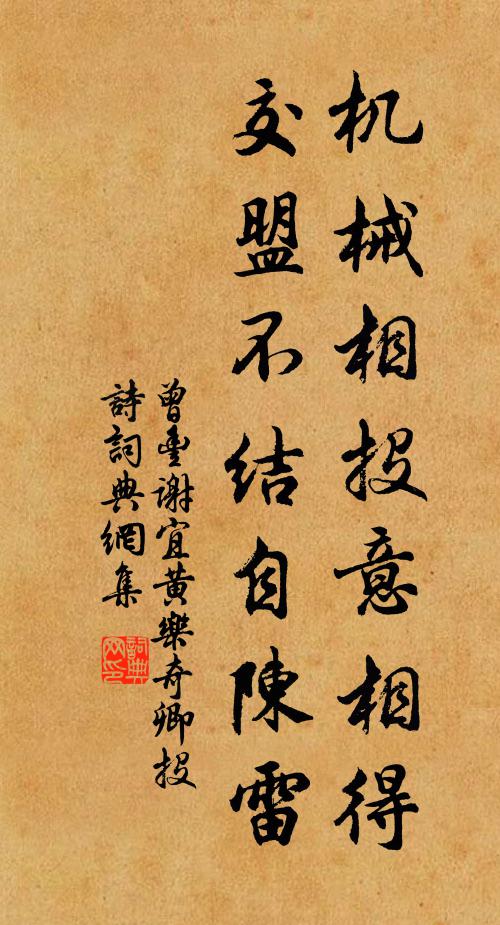 机械相投意相得
交盟不结自陳雷
曾豐謝宜黄樂奇卿投
詩詞典網集
詞典網印